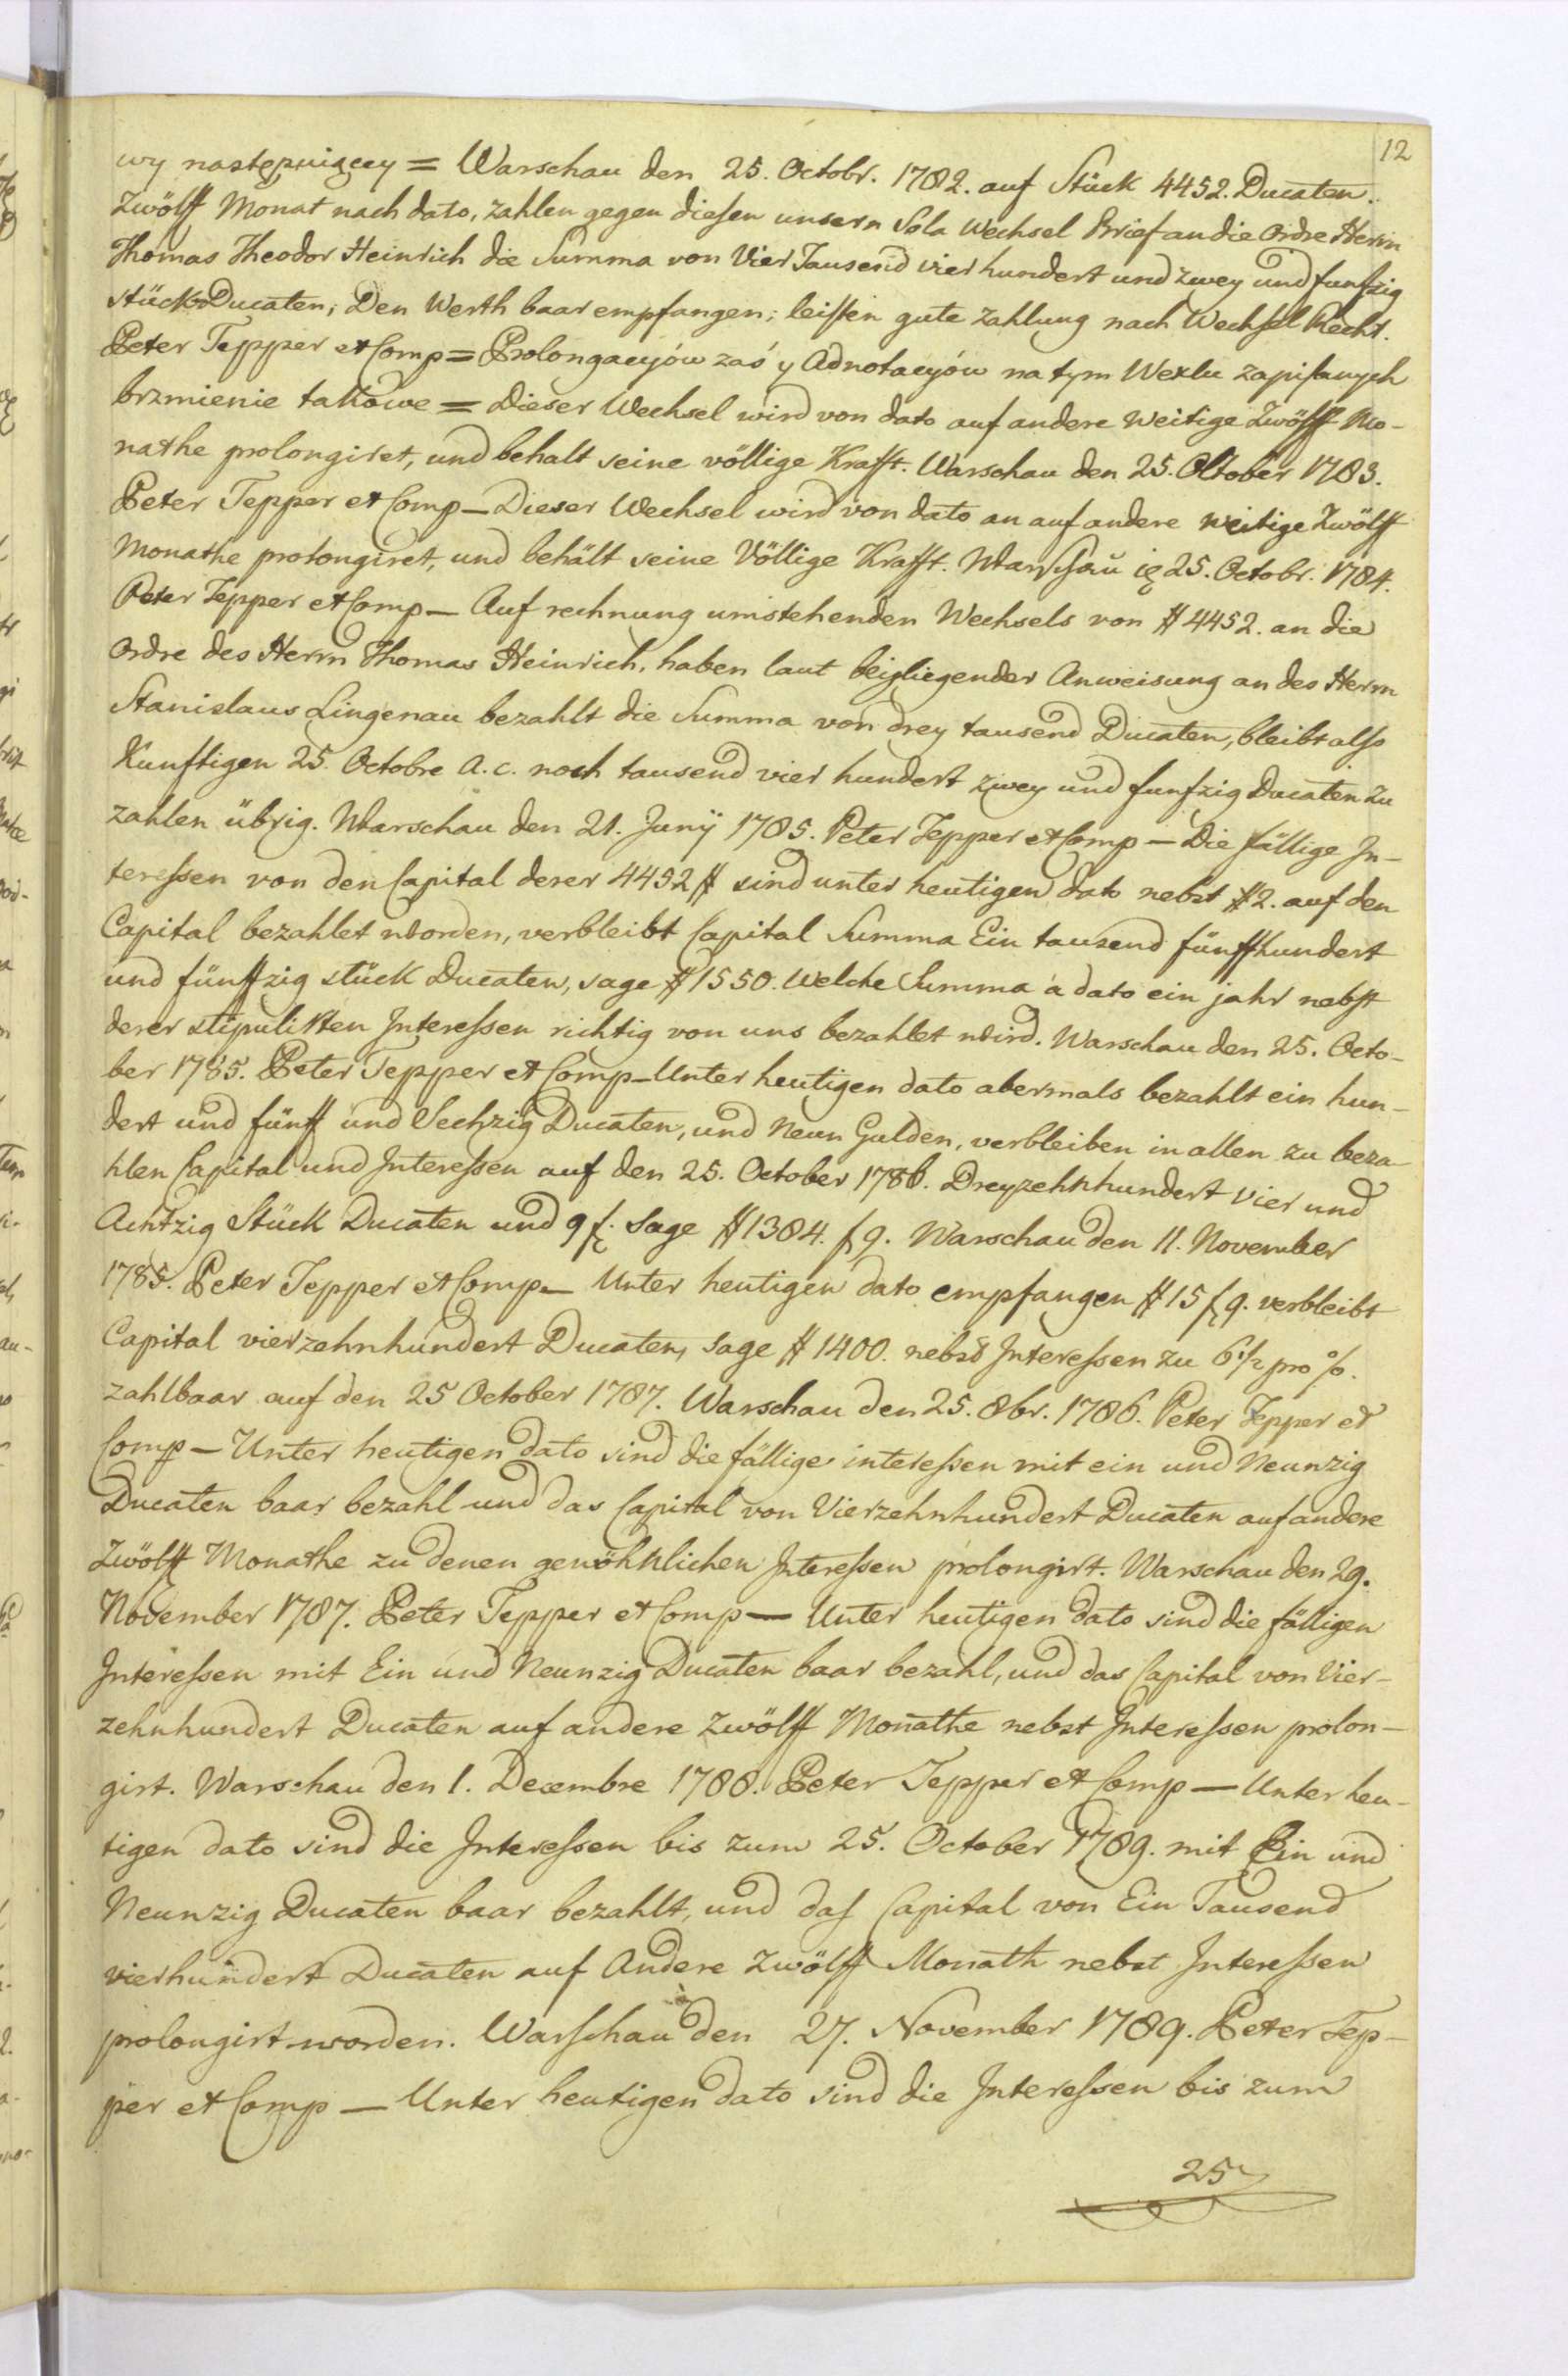 12
wy następuiącey = Warschau den 25. Octobr. 1782. auf Stück 4452. Ducaten.
Zwölff Monat nach dato, zahlen gegen diesen unsern Sola Wechsel Brief an die Ordre Herrn
Thomas Theodor Heinrich die Summa von Vier Tausend vier hundert und zwey und funfzig
stück Ducaten; Den Werth baar empfangen; leisten gute Zahlung nach Wechsel Recht.
Peter Tepper et Comp = Prolongacyów zaś y Adnotacyów na tym Wexlu zapisanych
brzmienie takowe = Dieser Wechsel wird von dato auf andere weitige Zwölff Mo-
nathe prolongiret, und behalt seine völlige Krafft. Warschau den 25. Oktober 1783.
Peter Tepper et Comp — Dieser Wechsel wird von dato an auf andere weitige Zwölff
Monathe prolongiret, und behält seine Völlige Krafft. Warschau 25. Octobr. 1784.
Peter Tepper et Comp — Auf rechnung umstehenden Wechsels von # 4452. an die
Ordre des Herrn Thomas Heinrich, haben laut beigliegender Anweisung an des Herrn
Stanislaus Lingenau bezahlt die Summa von drey tausend Ducaten, bleibt also
Kunftigen 25. Octobre a. c. noch tausend vier hundert zwey und funfzig Ducaten zu
zahlen übrig. Warschau den 21. Junÿ 1785. Peter Tepper et Comp — Die fällige In-
teressen von den Capital derer 4452 # sind unter heutigen dato nebst # 2. auf den
Capital bezahlet worden, verbleibt Capital Summa Ein tausend fünffhundert
und fünffzig stück Ducaten, sage # 1550. Welche Summa à dato ein jahr nebst
derer stipulirten Interessen richtig von uns bezahlet wird. Warschau den 25. Octo-
ber 1785. Peter Tepper et Comp — Unter heutigen dato abermals bezahlt ein hun-
dert und fünff und Sechzig Ducaten, und Neun Gulden, verbleiben in allen zu beza-
hlen Capital und Interessen auf den 25. October 1786. Dreyzehnhundert vier und
Achtzig Stück Ducaten und 9 f. Sage # 1384. f 9. Warschau den 11. November
1785. Peter Tepper et Comp — Unter heutigen dato empfangen # 15 f 9. verbleibt
Capital vierzehnhundert Ducaten, sage # 1400. nebst Interessen zu 6½ pro %.
zahlbaar auf den 25 October 1787. Warschau den 25. 8br. 1786. Peter Tepper et
Comp — Unter heutigen dato sind die fällige interessen mit ein und Neunzig
Ducaten baar bezahl und das Capital von Vierzehnhundert Ducaten auf andere
Zwölff Monathe zu denen gewöhnlichen Interessen prolongirt. Warschau den 29.
November 1787. Peter Tepper et Comp — Unter heutigen dato sind die fälligen
Interessen mit Ein und Neunzig Ducaten baar bezahl, und das Capital von Vier-
zehnhundert Ducaten auf andere Zwölff Monathe nebst Interessen prolon-
girt. Warschau den 1. Decembre 1788. Peter Tepper et Comp — Unter heu-
tigen dato sind die Interessen bis zum 25. October 1789. mit Ein und
Neunzig Ducaten baar bezahlt, und das Capital von Ein Tausend
vierhundert Ducaten auf Andere Zwölff Monath nebst Interessen
prolongirt worden. Warschau den 27. November 1789. Peter Tep-
per et Comp — Unter heutigen dato sind die Interessen bis zum
25